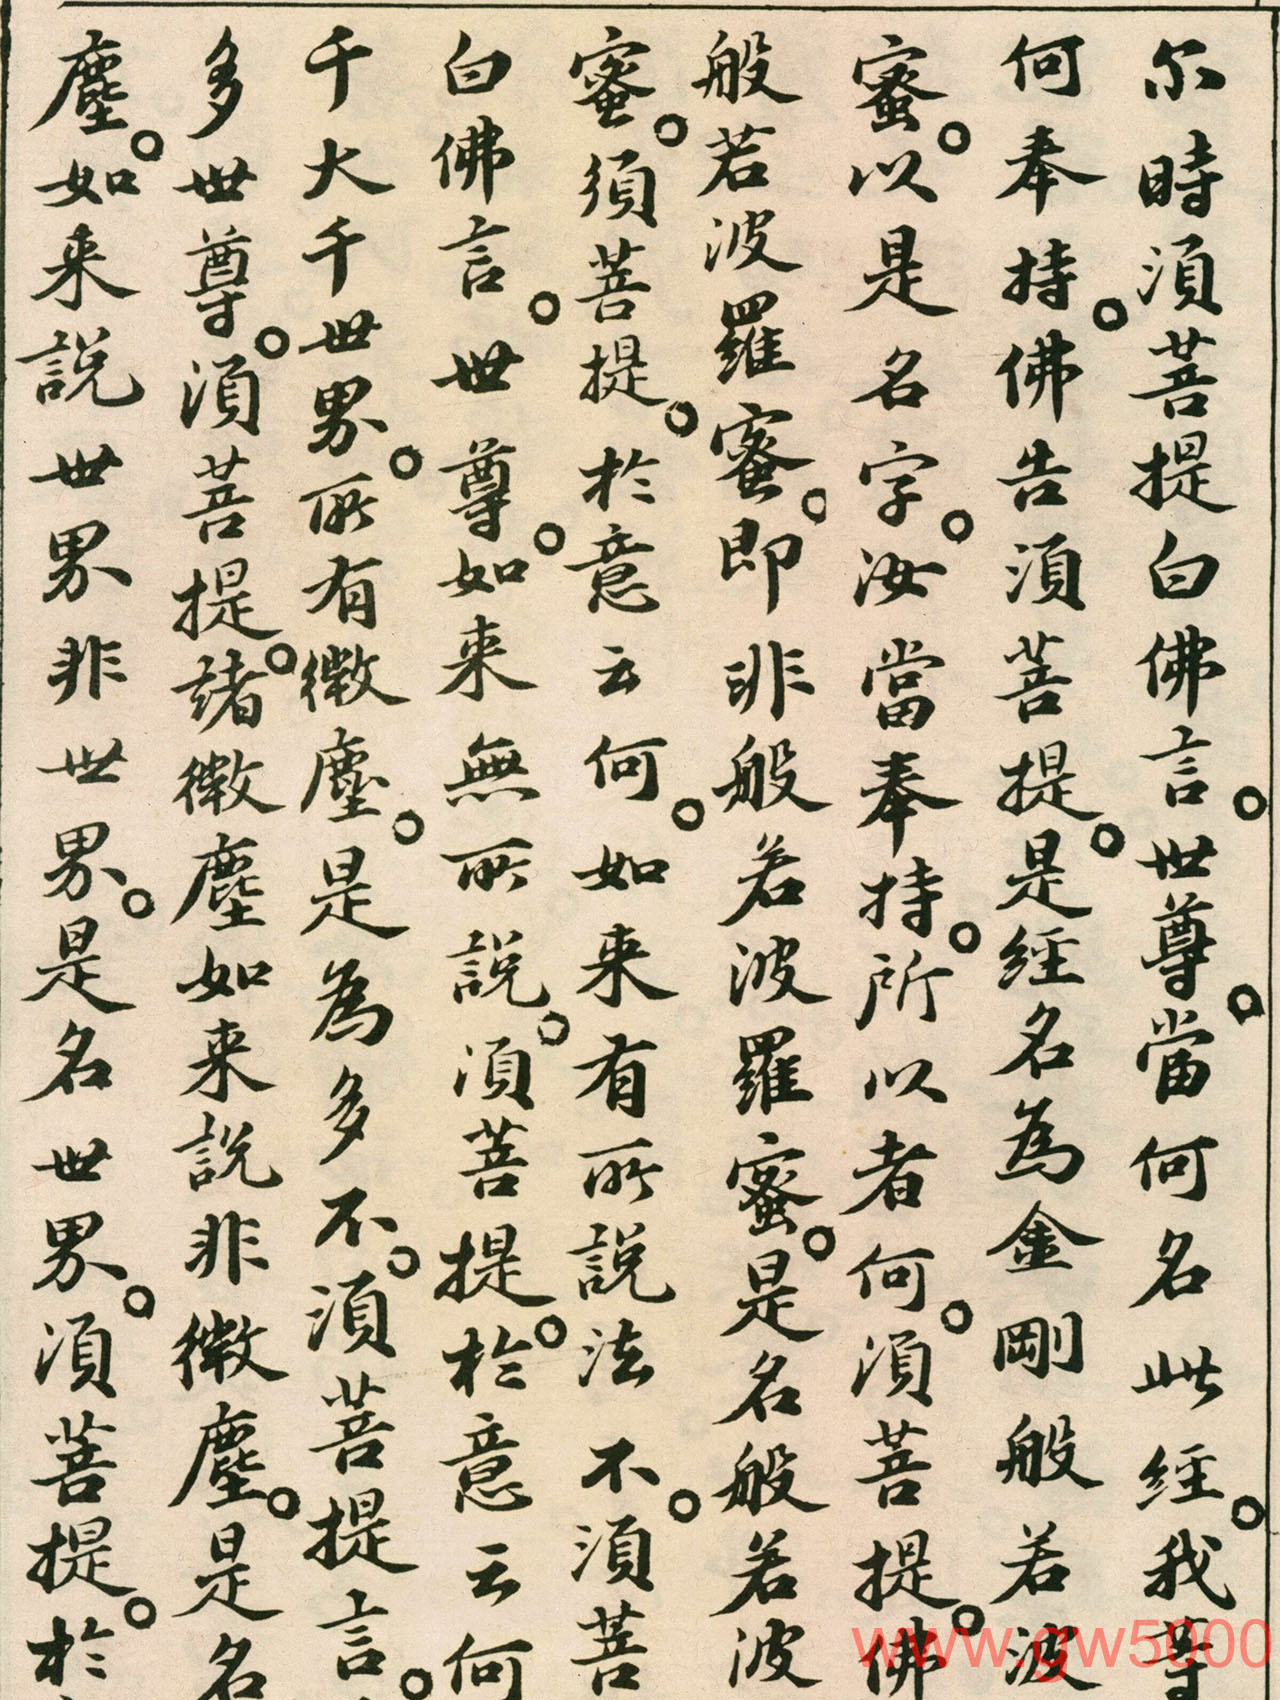 尔時須菩提白佛言。世尊。當何名此經。我等
何奉持。佛告須菩提。是經名為金剛般若波
蜜。以是名字。汝當奉持。所以者何。須菩提。佛
般若波羅蜜。即非般若波羅蜜。是名般若波
蜜。須菩提。於意云何。如来有所說法不。須菩
白佛言。世尊。如来無所說。須菩提。於意云何
千大千世界。所有微塵。是為多不。須菩提言。
多世尊。須菩提。諸微塵如来說非微塵。是名
塵。如来說世界非世界。是名世界。須菩提。於
www.gw5000